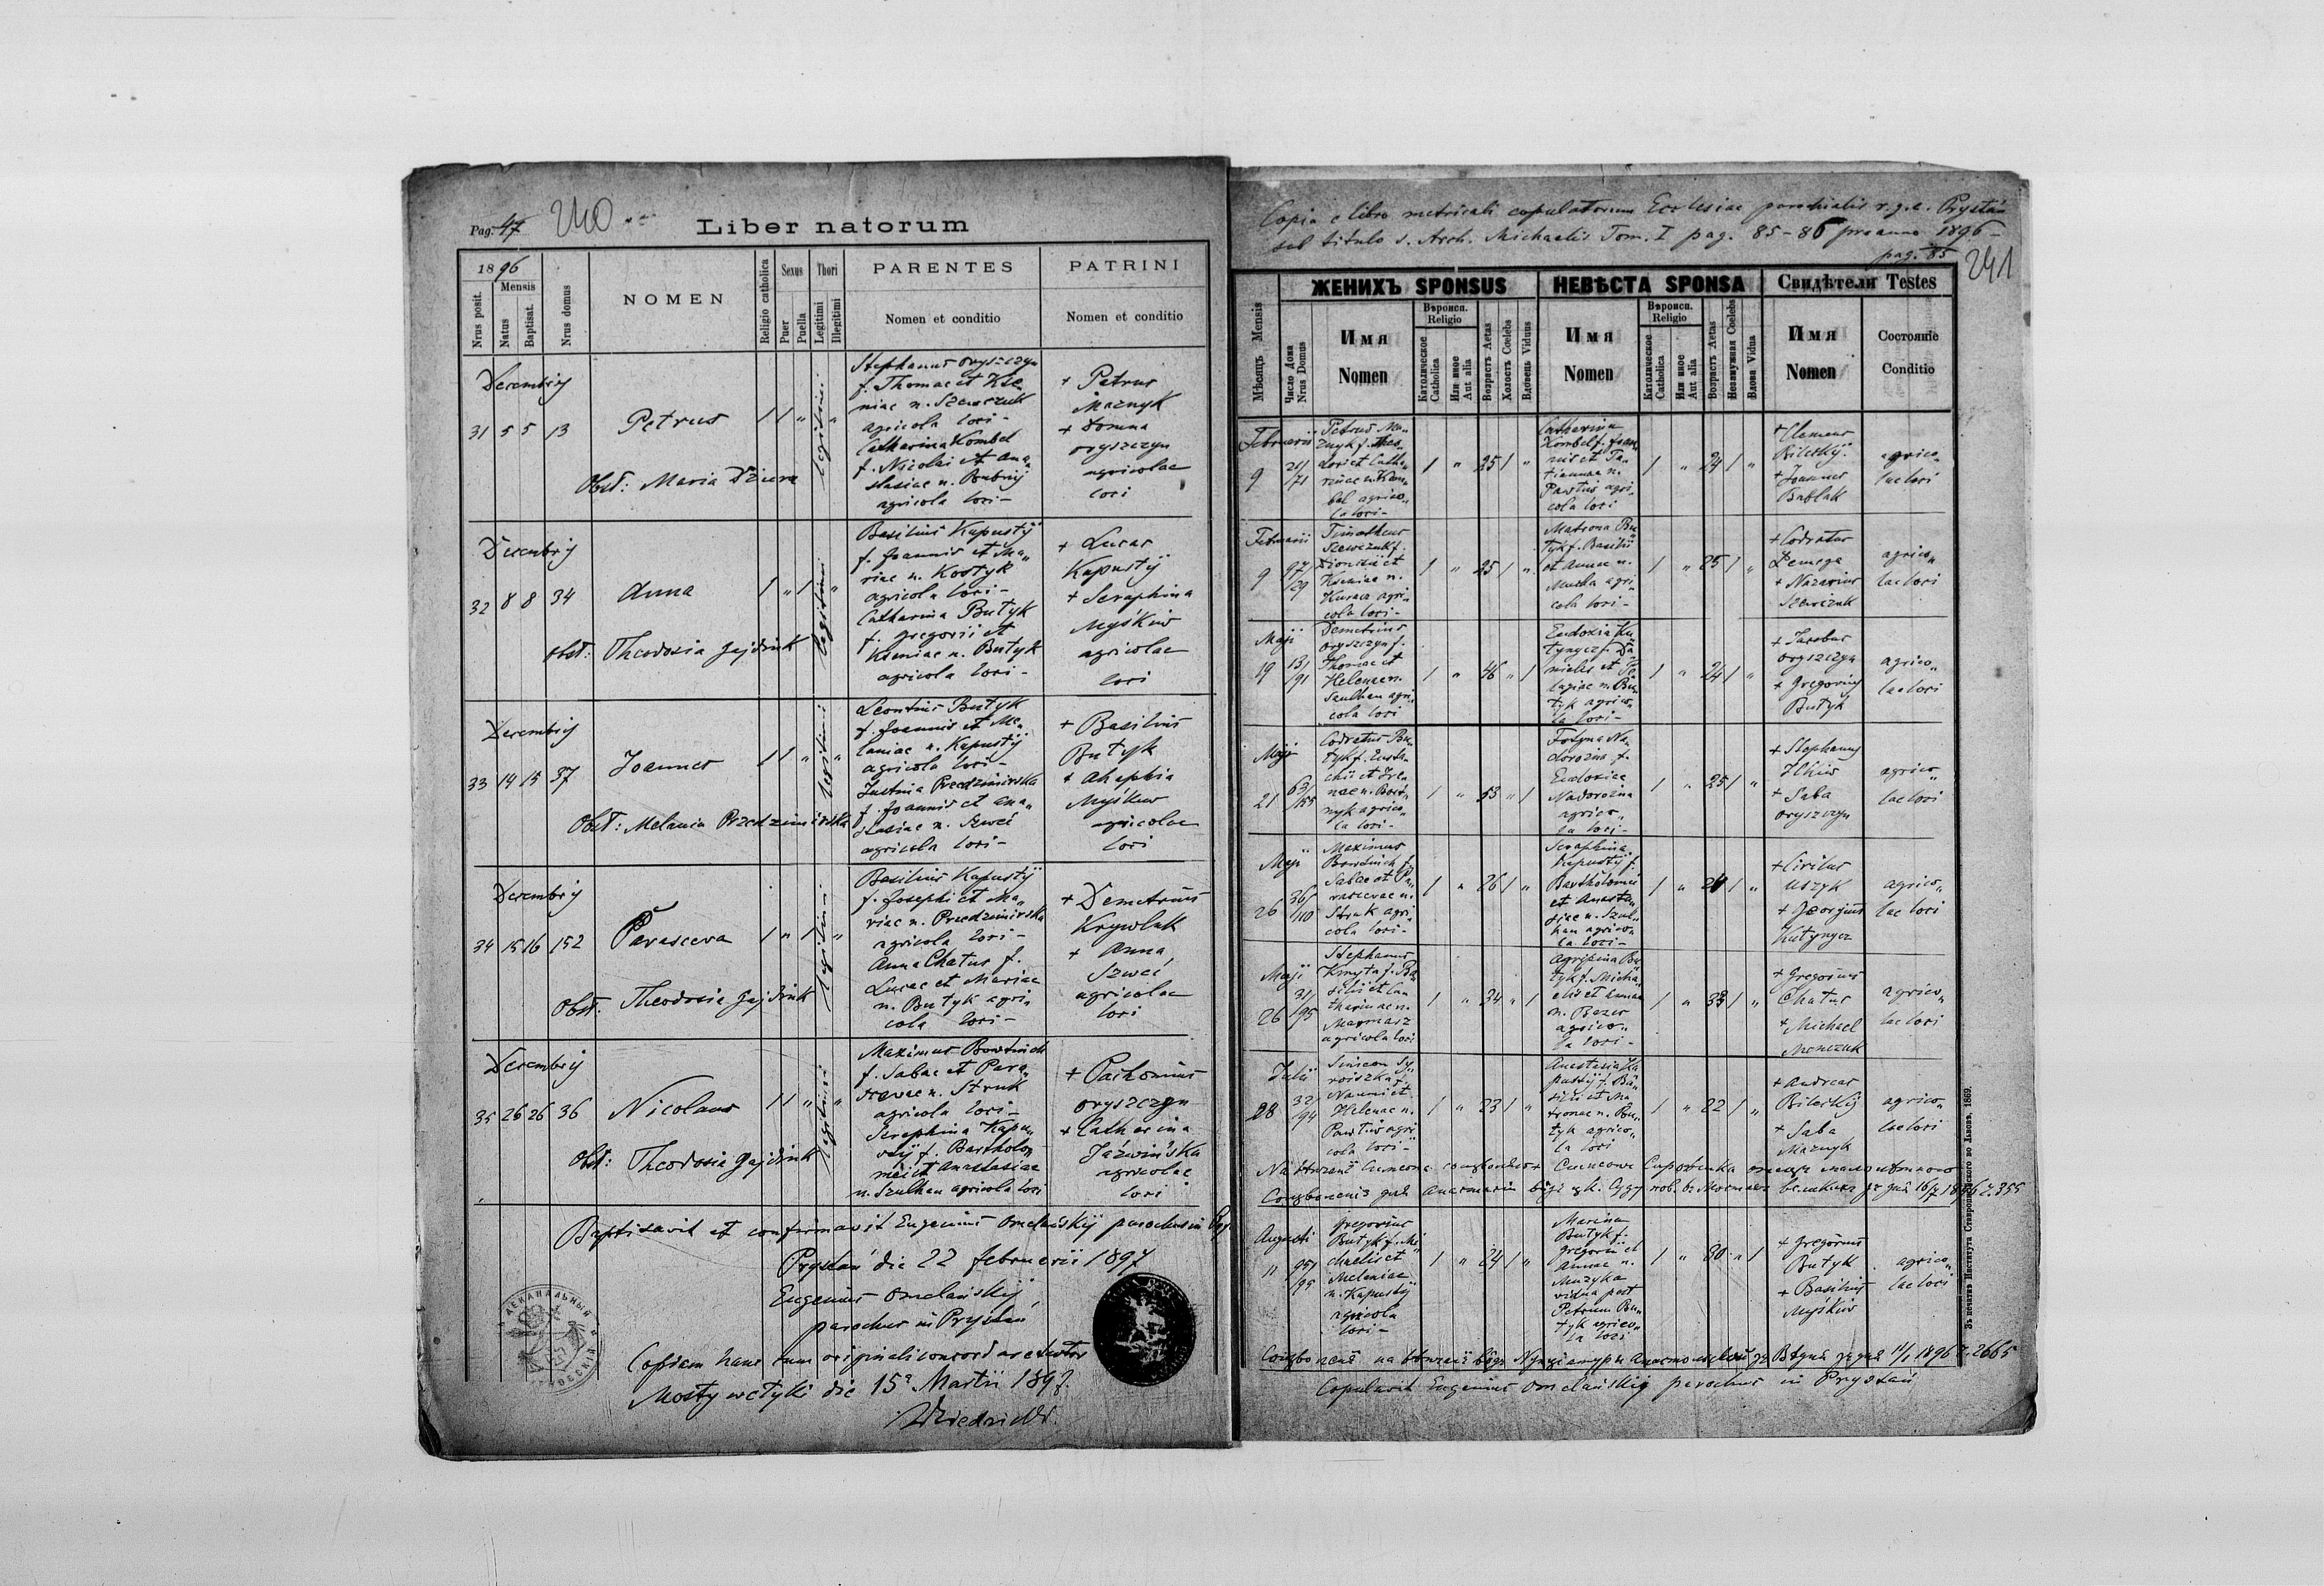 Pag. 47 240
Liber natorum
1896
Mensis
Nrus posit.
Natus
Baptisat.
Nrus domus
NOMEN
Religio catholica
Sexus
Puer
Puella
Thori
Legitimi
Illegitimi
PARENTES
Nomen et conditio
PATRINI
Nomen et conditio
Decembrij
31 5 5 13
Petrus
1 1 " "
Legitimi
Obst: Maria Dziura
Stephanus Oryszczyn
f. Thomae et Kse„
niae n. Szewczuk
agricola loci –
Catharina Kombel
f. Nicolai et Ana„
stasiae n.
agricola loci –
+ Petrus
Maznyk
+ Domna
Oryszczyn
agricolae
loci
Decembrij
32 8 8 34
Anna
1 " 1 "
Legitimi
Obst: Theodosia Gajdiuk
Basilius Kapustij
f. Joannis et Ma„
riae n. Kostyk
agricola loci –
Catharina Butyk
f. Gregorii et
Kseniae n. Butyk
agricola loci –
+ Lucas
Kapustij
+ Seraphina
Myśkiw
agricolae
loci
Decembrij
33 14 15 37
Joannes
1 1 " "
Legitimi
Obst: Melania Przedzimirska
Leontius Butyk
f. Joannis et Me„
laniae n. Kapustij
agricola loci –
Justina Przedzimirska
f. Joannis et Ana„
stasiae n. Szweć
agricola loci –
+ Basilius
Butyk
+ Ahaphia
Myśkiw
agricolae
loci
Decembrij
34 15 16 152
Parasceva
1 " 1 "
Legitimi
Obst: Theodosia Gajdiuk
Basilius Kapustij
f. Josephi et Ma„
riae n. Przedzimirska
agricola loci –
Anna Chatus f.
Lucae et Mariae
n. Butyk agri
cola loci –
+ Demetrius
Krywluk
+ Anna
Szweć
agricolae
loci
Decembrij
35 26 26 36
Nicolaus
1 1 " "
Legitimi
Obst: Theodosia Gajdiuk
Maximus Bowtnich
f. Sabae et Para„
scevae n. Struk
agricola loci –
Seraphina Kapu„
stij f. Bartholo„
mei et Anastasiae
n. Szulhan agricola loci
+ Pachomius
Oryszczyn
+ Catharina
Jaźwińska
agricolae
loci
Baptisavit et confirmavit Eugenius Omelańskij parochus in
Prystań die 22 februarii 1897
Eugenius Omelańskij
parochus in Prystań
Copiam hanc cum originali concordare testor
Mosty wełyki die 15ª Martii 1897.
ДЕКАНАЛЬНЫЙ
Copia e libro metricali copulatorum Ecclesiae parochialis r.g.c. Prystań
sub titulo S. Arch. Michaelis Tom. I pag. 85–86 pro anno 1896 –
pag. 85
241
Мѣсяцъ Mensis
Число Дома
Nrus Domus
ЖЕНИХЪ SPONSUS
Имя
Nomen
Вѣроисп.
Religio
Католическое
Catholica
Или иное
Aut alia
Возрастъ Aetas
Холостъ Coelebs
Вдовець Viduus
НЕВѢСТА SPONSA
Имя
Nomen
Вѣроисп.
Religio
Католическое
Catholica
Или иное
Aut alia
Возрастъ Aetas
Незамужная Coelebs
Вдова Vidua
Свидѣтели Testes
Имя
Nomen
Состояніе
Conditio
Februarii
9 21/71
Petrus Ma„
znyk f. Theo„
dori et Catha„
rinae n. Kom„
bel agrico„
la loci –
1 " 25 1 "
Catharina
Kombel f. Joan
nis et Ta„
tiannae n.
Pawtiuś agri„
cola loci
1 " 24 1 "
+ Clemens
Bileckij
+ Joannes
Bablak
agrico„
lae loci
Februarii
9 97/29
Timotheus
Szewczuk f.
Dionisii et
Kseniae n.
Kuracz agri„
cola loci –
1 " 25 1 "
Matrona Bu„
tyk f. Basilii
et Annae n.
agri„
cola loci –
1 " 25 1 "
+ Codratus
Demega
+ Nazarius
Szewczuk
agrico„
lae loci
Maji
19 131/91
Demetrius
Oryszczyn f.
Thomae et
Helenae n.
Szulhan agri„
cola loci
1 " 46 " 1
Eudoxia Ku„
tynycz f. Da„
nielis et Pe„
lagiae n. Bu„
tyk agrico„
la loci –
1 " 24 1 "
+ Jacobus
Oryszczyn
+ Gregorius
Butyk
agrico„
lae loci
Maji
21 63/155
Codratus Bu„
tyk f. Eusta„
chii et Ire„
nae n. Bort„
nyk agrico„
la loci –
1 " 53 " 1
Fotyna Na„
dorożna f.
Eudoxiae
Nadorożna
agrico„
la loci –
1 " 25 1 "
+ Stephanus
Ilkiw
+ Saba
Oryszczyn
agrico„
lae loci
Maji
26 36/110
Maximus
Bowtnich f.
Sabae et Pa„
rascevae n.
Struk agri„
cola loci –
1 " 26 1 "
Seraphina
Kapustij f.
Bartholomei
et Anasta„
siae n. Szul„
han agrico„
la loci –
1 " 24 1 "
+ Cirilus
Uszyk
+ Georgius
Kutynycz
agrico„
lae loci
Maji
26 31/95
Stephanus
Kmyta f. Ba„
silii et Ca„
tharinae n.
agricola loci
1 " 34 " 1
Agripina Bu„
tyk f. Micha„
elis et Annae
n. Bezer
agrico„
la loci –
1 " 33 1 "
+ Gregorius
Chatus
+ Michael
agrico„
lae loci
Julii
28 32/94
Simeon Sy„
roiszka f.
Naumi et
Helenae n.
Pawtiuś agri„
cola loci –
1 " 23 1 "
Anastasia Ka
pustij f. Ba„
silii et Ma„
tronae n. Bu„
tyk agrico„
la loci
1 " 22 1 "
+ Andreas
Bileckij
+ Saba
Maznyk
agrico„
lae loci
На
Augusti
11 95/95
Gregorius
Butyk f. Mi„
chaelis et
Melaniae
n. Kapustij
agricola
loci –
1 " 24 1 "
Marina
Butyk f.
Gregorii et
Annae n.
Muzyka
vidua post
Petrum Bu„
tyk agrico„
la loci
1 " 30 " 1
+ Gregorius
Butyk
+ Basilius
Myśkiw
agrico„
lae loci
Copulavit Eugenius Omelańskij parochus in Prystań
Зъ печатнѣ Института Ставропигійского во Львовѣ. 1889.